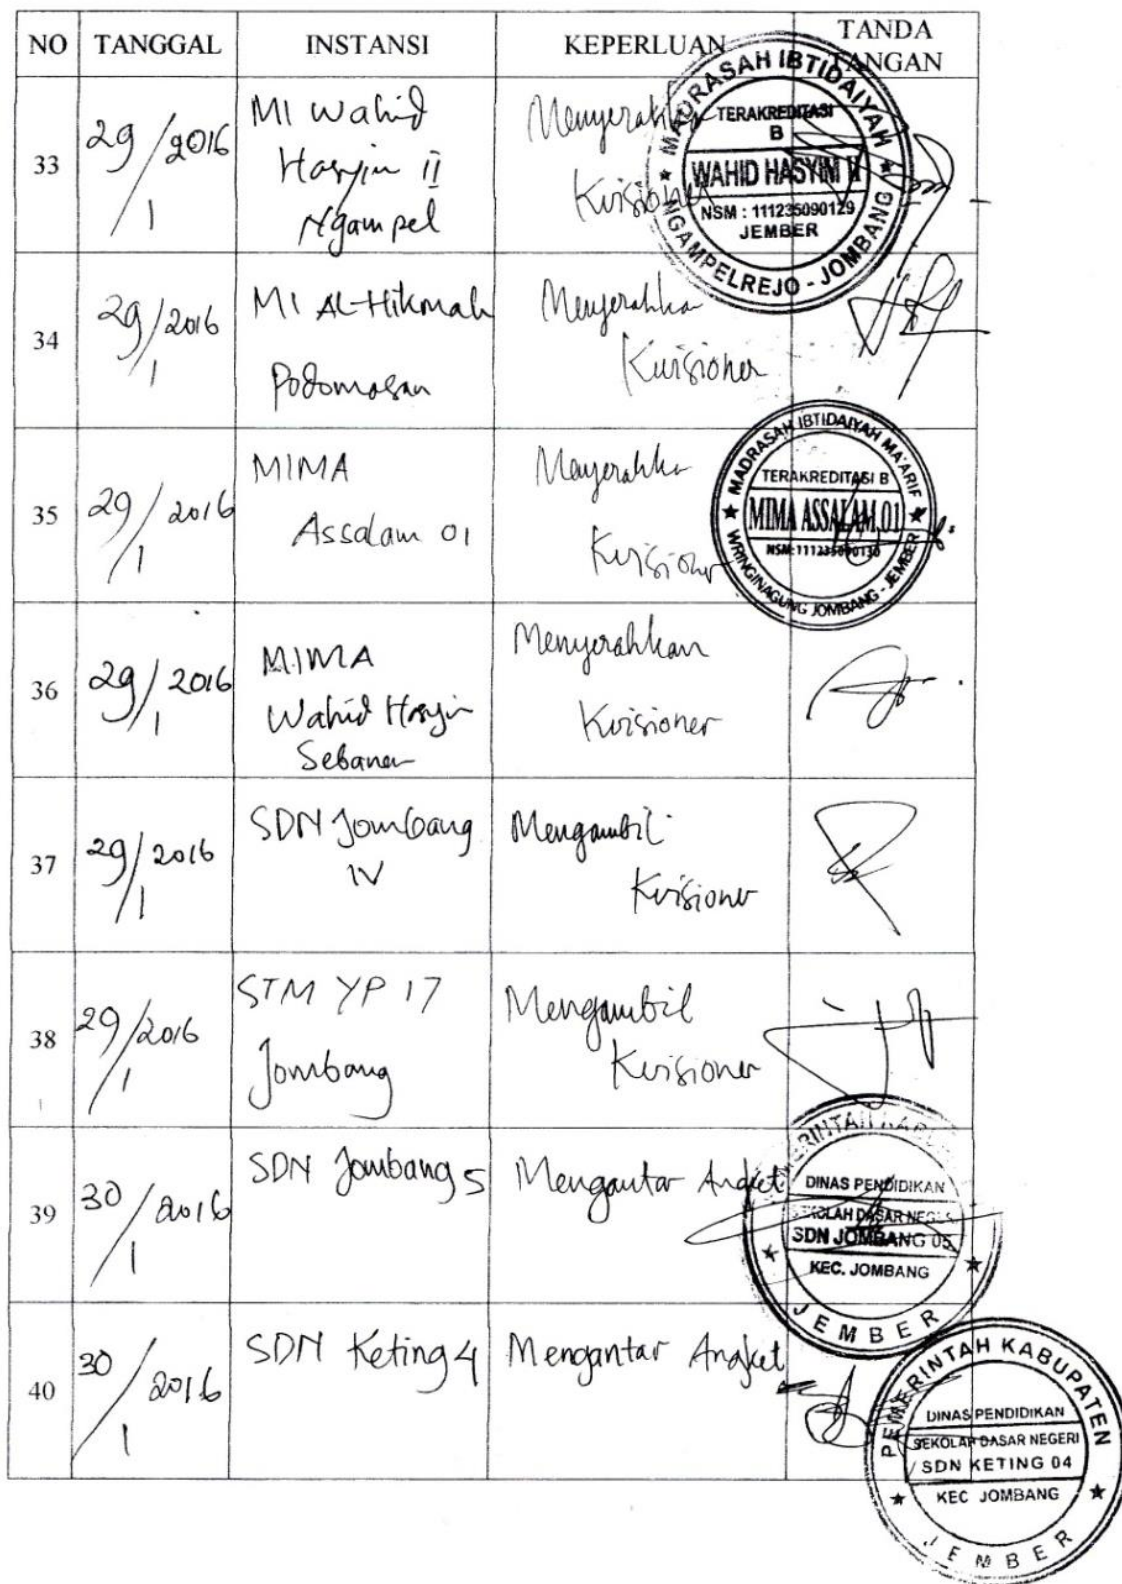 NO TANGGAL INSTANSI KEPERLUAN TANDA TANGAN
33 29/1 2016 MI Wahid Menyerahka
Hasyim II Kuisioner
Ngampel
MADRASAH IBTIDAIYAH
TERAKREDITASI
B
WAHID HASYIM II
NSM : 111235090129
JEMBER
NGAMPELREJO - JOMBANG
34 29/1 2016 MI Al-Hikmah Menyerahka
Podomasan Kuisioner
35 29/1 2016 MIMA Menyerahka
Assalam 01 Kuisioner
MADRASAH IBTIDAIYAH MA'ARIF
TERAKREDITASI B
MIMA ASSALAM 01
NSM:111235090130
WRINGINAGUNG JOMBANG - JEMBER
36 29/1 2016 MIMA Menyerahkan
Wahid Hasyim Kuisioner
37 29/1 2016 SDN Jombang Mengambil
IV Kuisioner
38 29/1 2016 STM YP 17 Mengambil
Jombang Kuisioner
39 30/1 2016 SDN Jombang 5 Mengantar Angket
DINAS PENDIDIKAN
SEKOLAH DASAR NEGERI
SDN JOMBANG 05
KEC. JOMBANG
JEMBER
40 30/1 2016 SDN Keting 4 Mengantar Angket
PEMERINTAH KABUPATEN
DINAS PENDIDIKAN
SEKOLAH DASAR NEGERI
SDN KETING 04
KEC JOMBANG
JEMBER